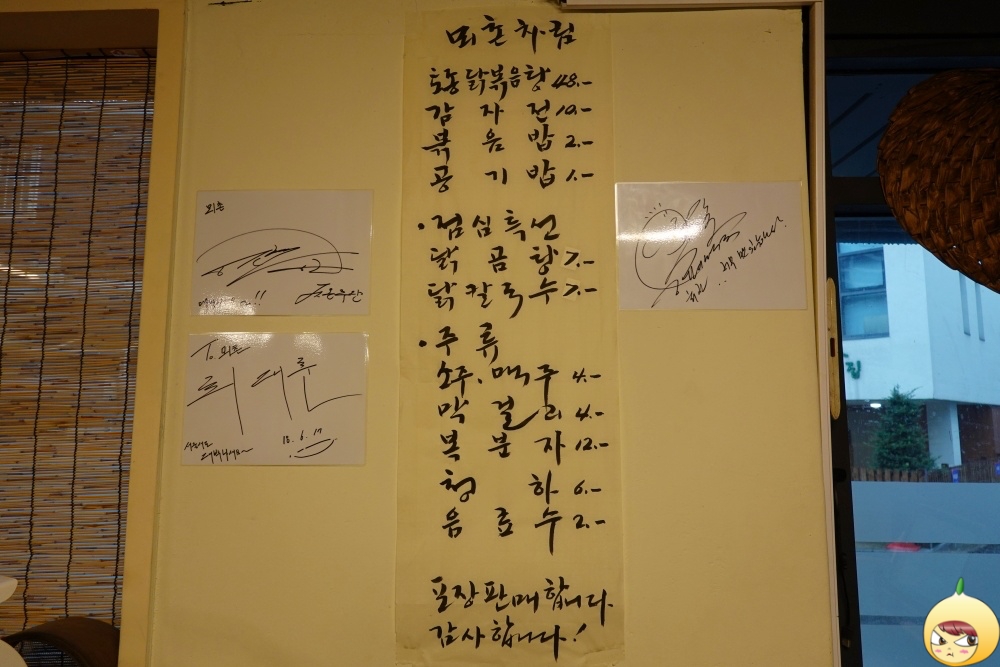 뫼촌차림
토종닭볶음탕 48.-
감자전 10.-
볶음밥 2.-
공기밥 1.-
·점심특선
닭곰탕 7.-
닭칼국수 7.-
·주류
소주.맥주 4.-
막걸리 4.-
복분자 12.-
청하 6.-
음료수 2.-
포장판매합니다.
감사합니다!
뫼촌
To.뫼촌
18.6.17